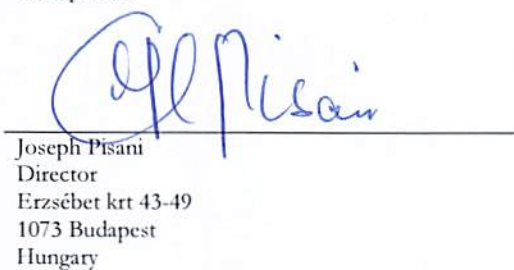 Joseph Pisani
Director
Erzsébet krt 43-49
1073 Budapest
Hungary